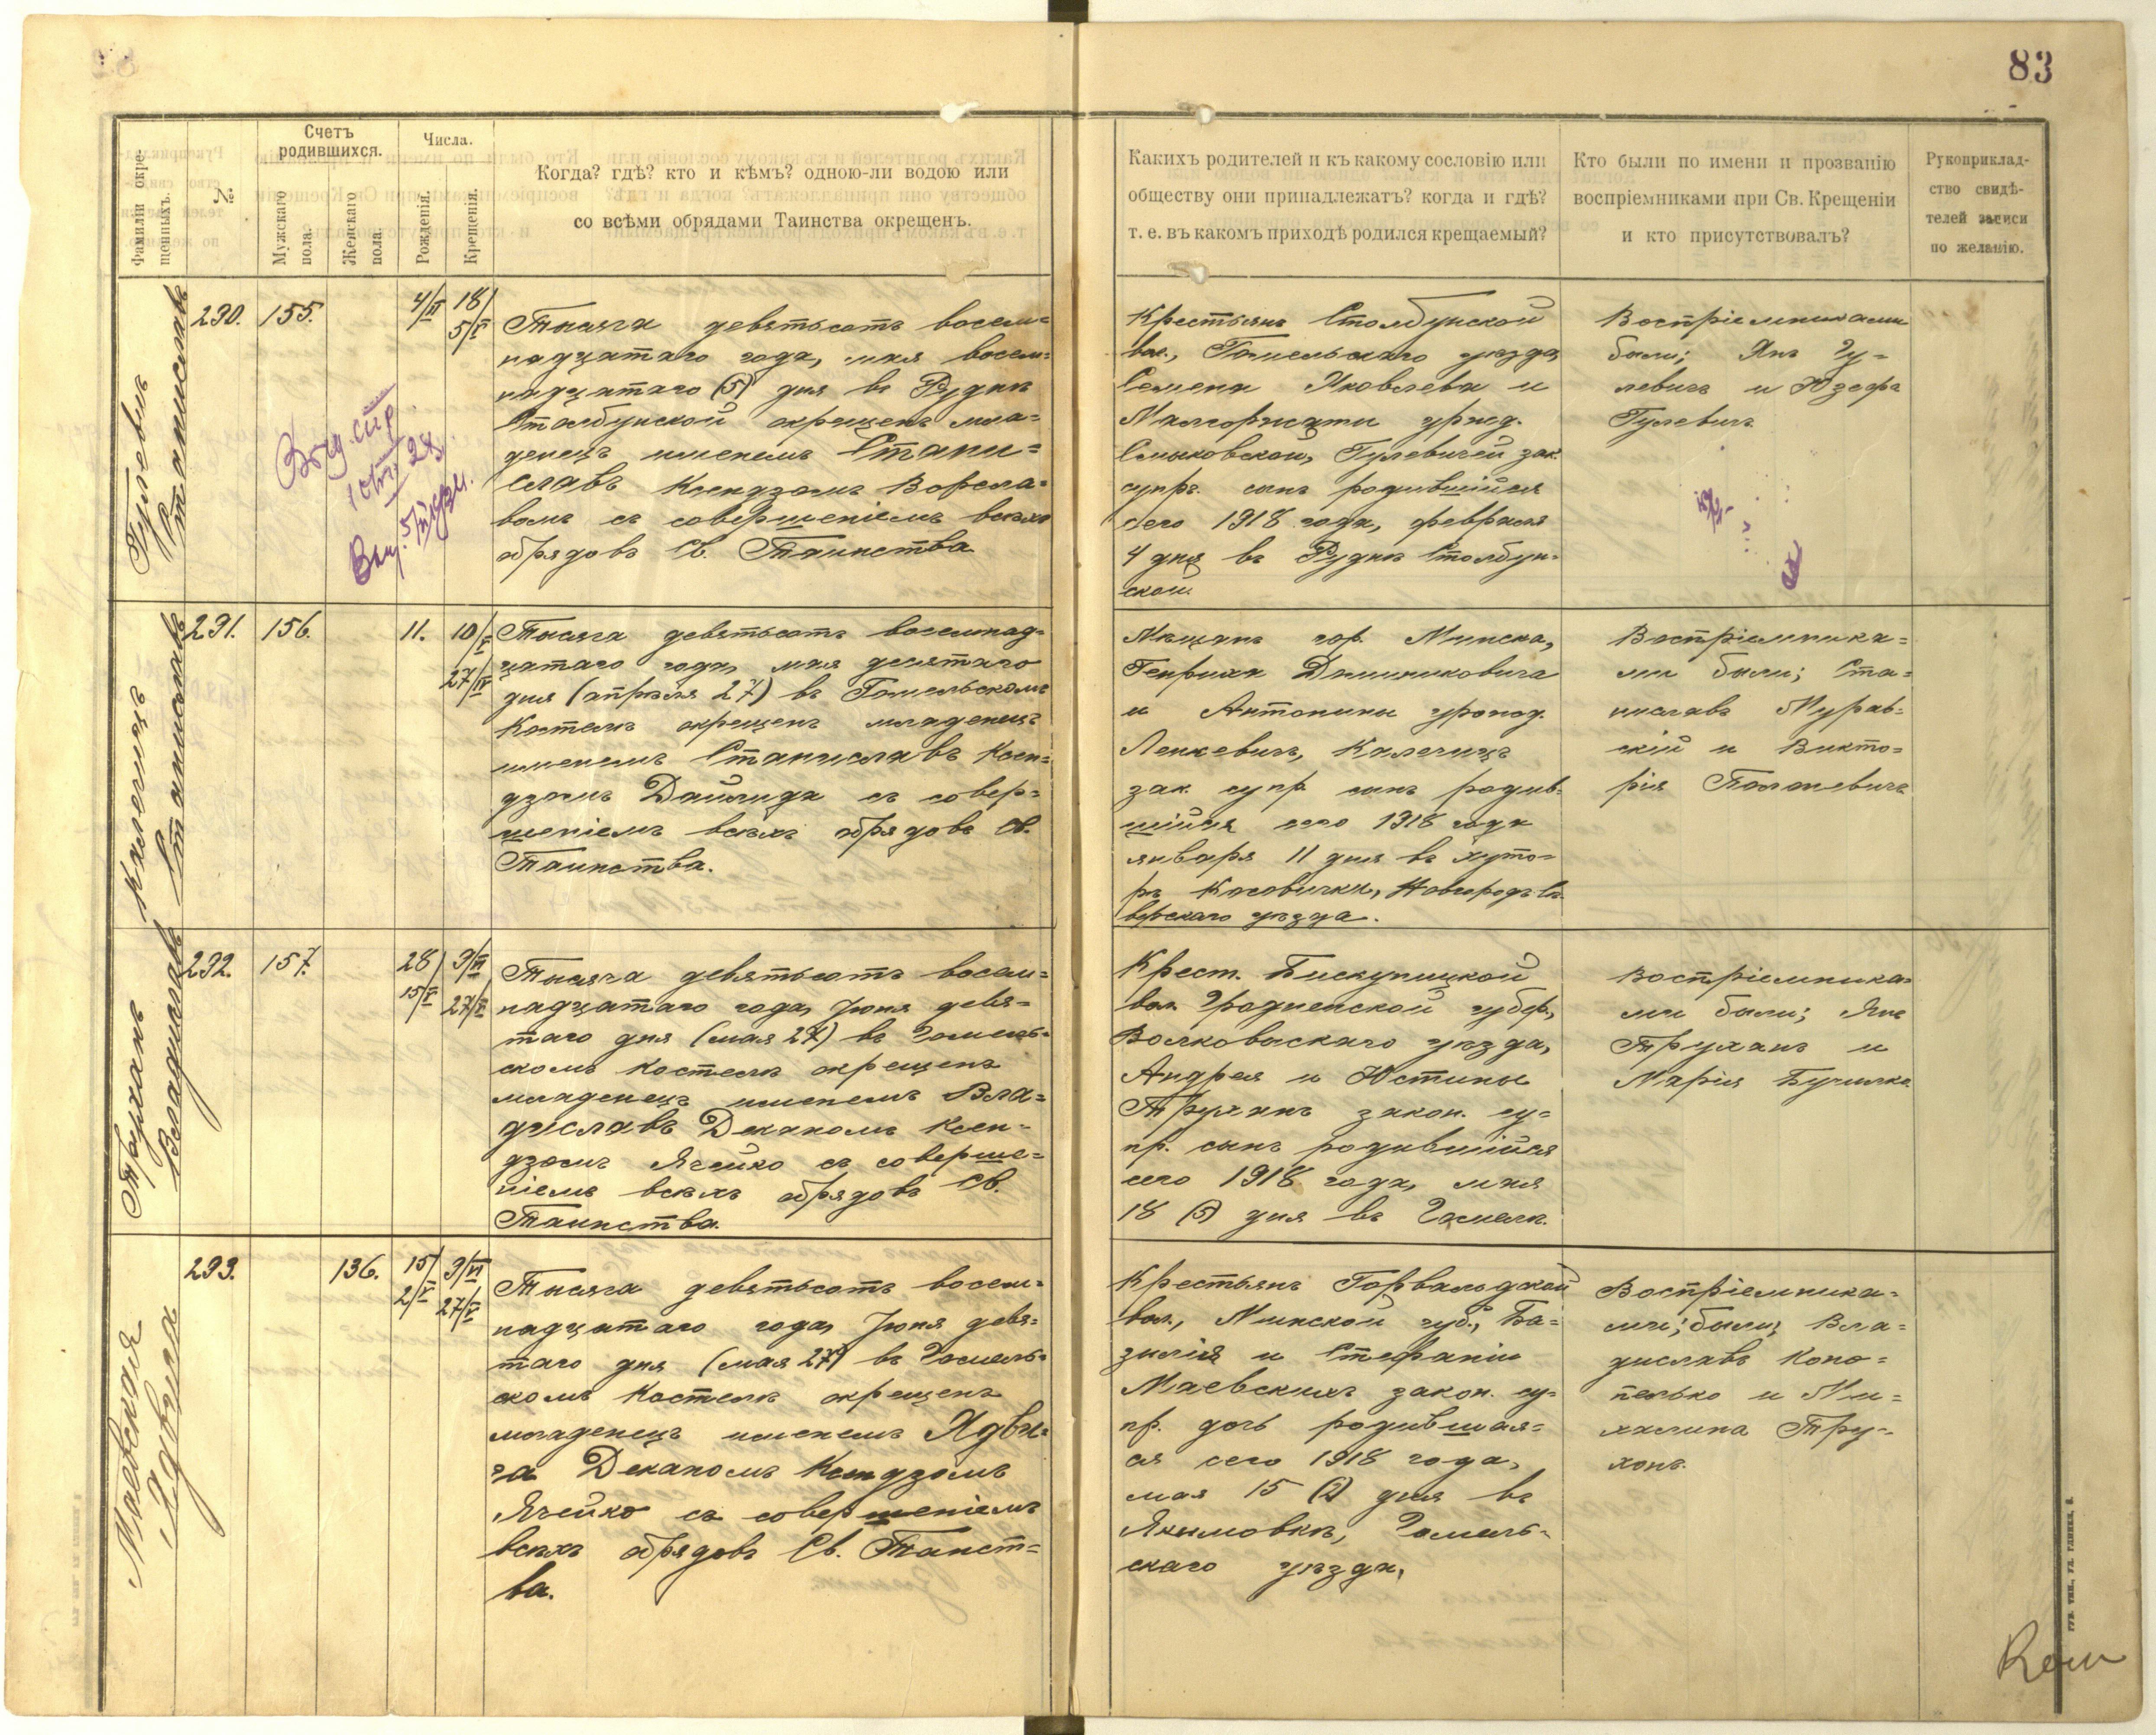 83
Фамиліи окре-
щенныхъ.
№
Счетъ
родившихся.
Мужскаго
пола.
Женскаго
пола.
Числа.
Рожденія.
Крещенія.
Когда? гдѣ? кто и кѣмъ? одною-ли водою или
со всѣми обрядами Таинства окрещенъ.
Какихъ родителей и къ какому сословію или
обществу они принадлежатъ? когда и гдѣ?
т. е. въ какомъ приходѣ родился крещаемый?
Кто были по имени и прозванію
воспріемниками при Св. Крещеніи
и кто присутствовалъ?
Рукоприклад-
ство свидѣ-
телей записи
по желанію.
Гулевичъ
Станиславъ
290.
155.
4/II
18/
5/V
Тысяча девятьсотъ восем=
надцатаго года, мая восем=
надцатаго (5) дня въ Руднѣ
Столбунской окрещенъ мла=
денецъ именемъ Стани=
славъ Ксендзомъ Ворсла=
вомъ съ совершеніемъ всѣхъ
обрядовъ Св. Таинства
Крестьянъ Столбунской
вол., Гомельскаго уѣзда,
Семена Яковлева и
Малгоржаты урожд.
Гулевичей зак.
супр. сынъ родившійся
сего 1918 года, февраля
4 дня въ Руднѣ Столбун=
ской.
Воспріемниками
были; Янъ Гу=
левичъ и Юзефа
Гулевичъ
Калечицъ
Станиславъ
291.
156.
11.
10/V
27/IV
Тысяча девятьсотъ восемнад=
цатаго года, мая десятаго
дня (апрѣля 27) въ Гомельскомъ
Костелѣ окрещенъ младенецъ
именемъ Станиславъ Ксен=
дзомъ Дайлида съ совер=
шеніемъ всѣхъ обрядовъ Св.
Таинства.
Мѣщанъ гор. Минска,
Генриха Доминиковича
и Антонины урожд.
Ленкевичъ, Калечицъ
зак. супр. сынъ родив=
шійся сего 1918 года
января 11 дня въ хуто=
рѣ Новгородъ Сѣ
верскаго уѣзда.
Воспріемника=
ми были; Ста=
ниславъ Мурав=
скій и Викто=
рія
Труханъ
Владиславъ
292.
157.
28/
15/V
9/VI
27/V
Тысяча девятьсотъ восем=
надцатаго года, Іюня девя=
таго дня (мая 27) въ Гомель=
скомъ Костелѣ окрещенъ
младенецъ именемъ Вла=
диславъ Деканомъ Ксен=
дзомъ Ячейко съ соверше=
ніемъ всѣхъ обрядовъ Св.
Таинства.
Крест. Бискупицкой
вол. Гродненской губер,
Волковыскаго уѣзда,
Андрея и Юстины
Труханъ закон. су=
пр. сынъ родившійся
сего 1918 года, мая
18 (5) дня въ Гомелѣ.
Воспріемника=
ми были; Янъ
Труханъ и
Марія
Маевская
Ядвига
293.
136.
15/
2/V
9/VI
27/V
Тысяча девятьсотъ восем=
надцатаго года, Іюня девя=
таго дня (мая 27) въ Гомель=
скомъ Костелѣ окрещенъ
младенецъ именемъ Ядви=
га Деканомъ Ксендзомъ
Ячейко съ совершеніемъ
всѣхъ обрядовъ Св. Таинст=
ва.
Крестьянъ Горвальдской
вол., Минской губ., Ба=
зилія и Стефаніи
Маевскихъ закон. су=
пр. дочь родившая=
ся сего 1918 года,
мая 15 (2) дня въ
Якимовкѣ, Гомель=
скаго уѣзда,
Воспріемника=
ми; были; Вла=
диславъ Коно=
пелько и Ми=
халина Тру=
ханъ.